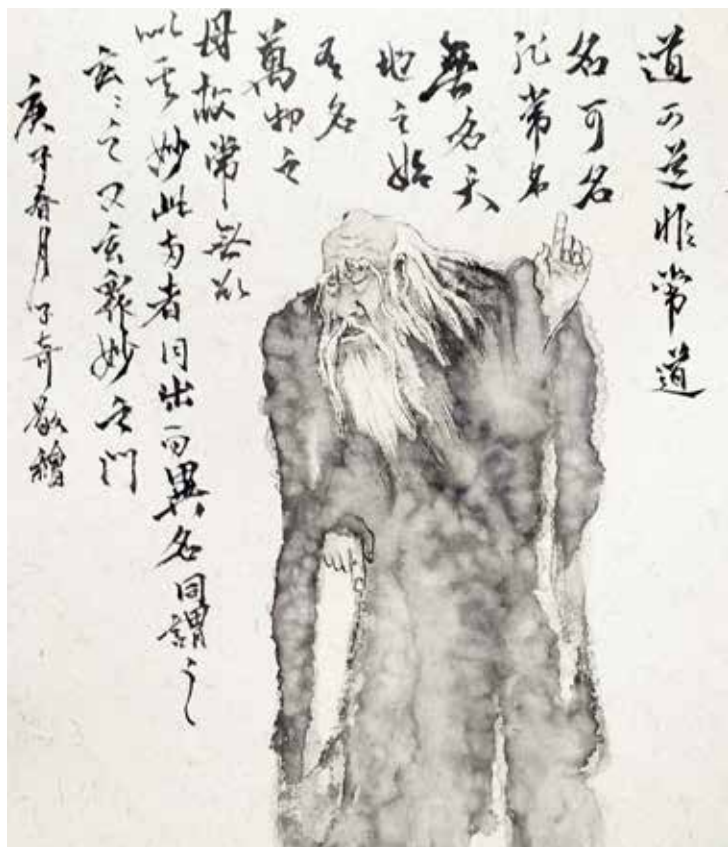 道可道非常道
名可名
非常名
無名天
地之始
有名
萬物之
母故常無欲
以其妙此兩者同出而異名同謂之
玄々之又玄衆妙之門
庚子春月子奇敬繪